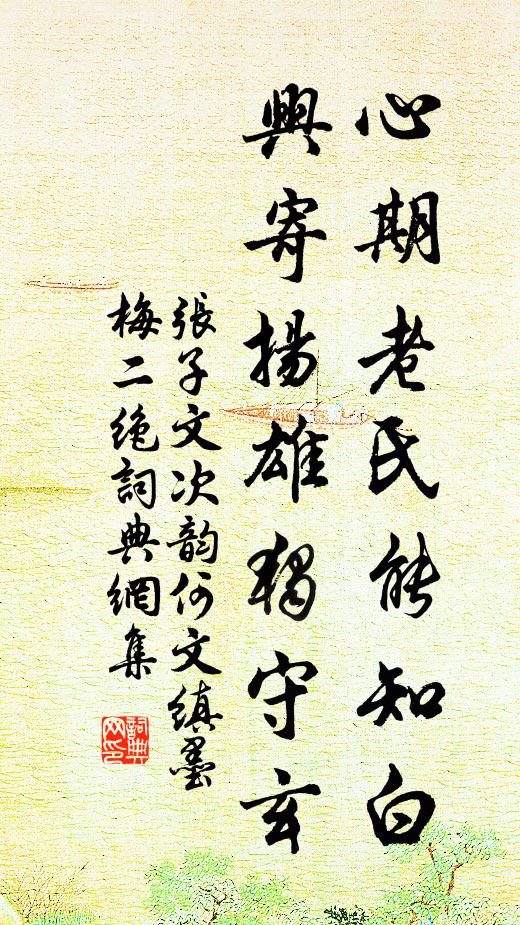 心期老氏能知白
興寄揚雄獨守玄
張子文次韵何文縝墨
梅二绝詞典網集
詞典网印